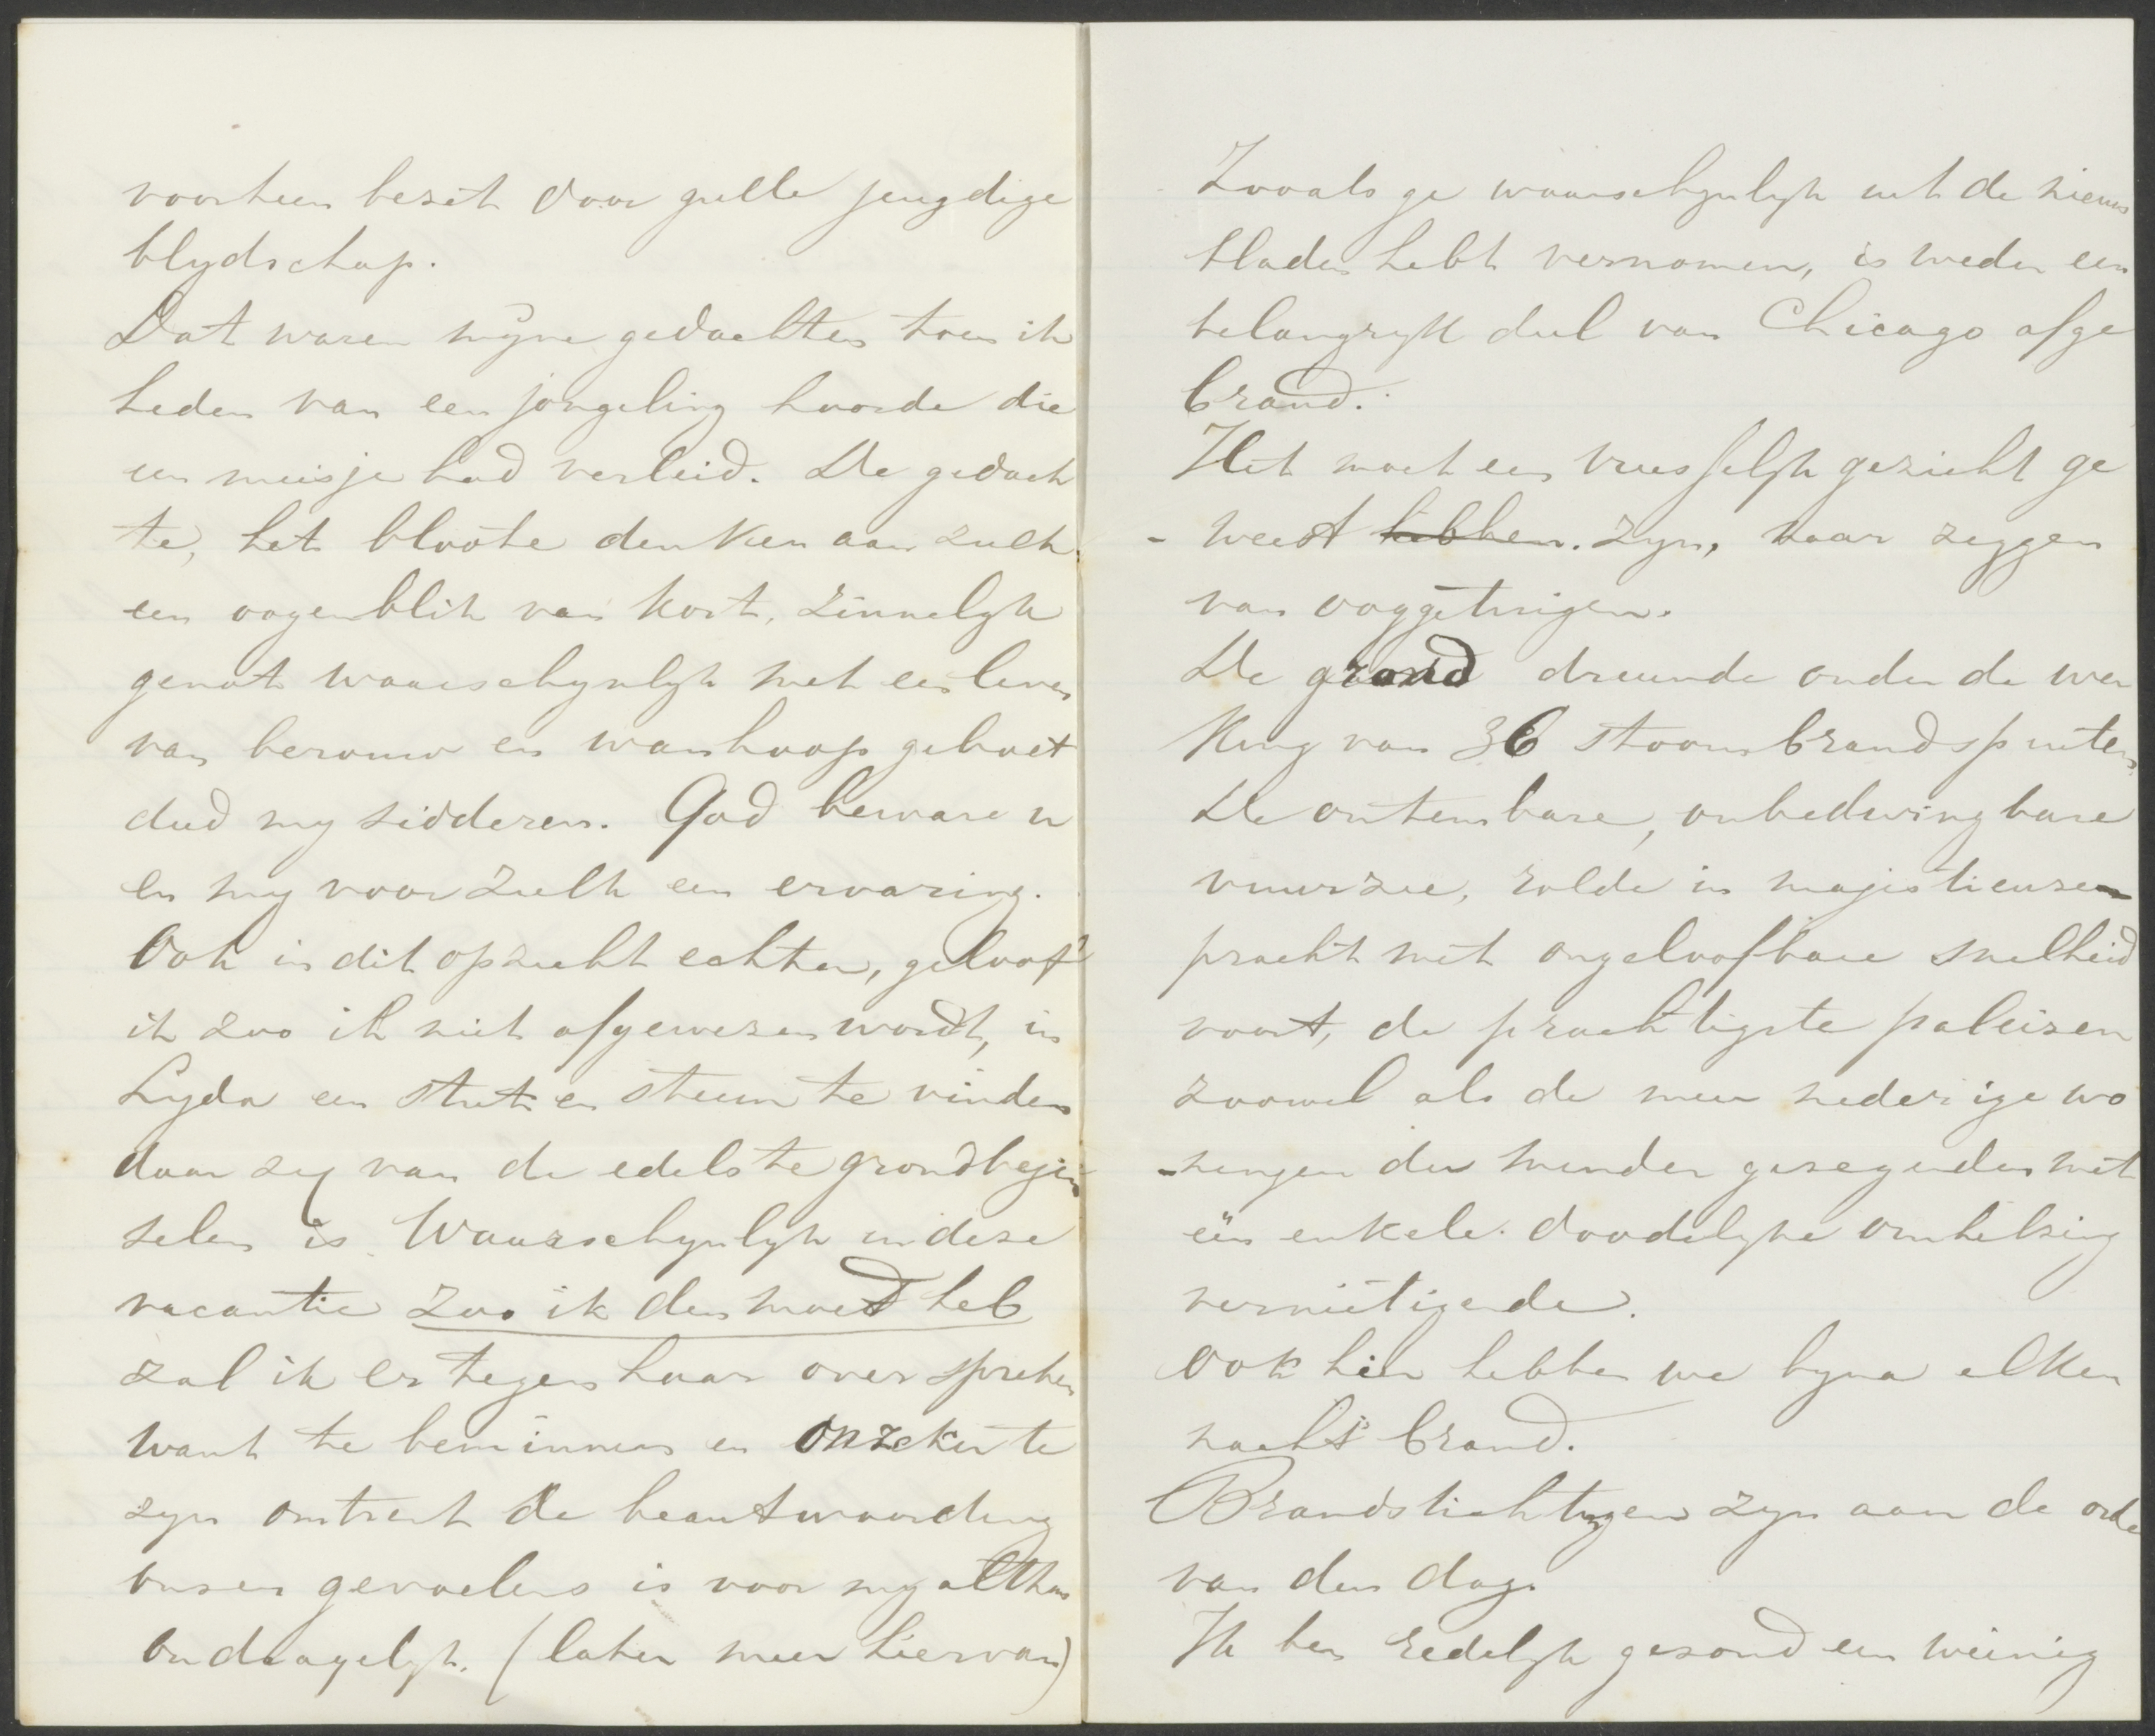 voorheen bezet door gulle jeugdige
blydschap.
Dat waren myne gedachten toen ik
heden van een jongeling hoorde die
een meisje had verleid. De gedach
te, het bloote denken aan zulk
een oogenblik van kort, zinnelyk
genot waarschynlyk met een leven
van berouw en wanhoop geboet
deed my sidderen. God beware u
en my voor zulk een ervaring.
Ook in dit opzicht echter, geloof
ik zoo ik niet afgewezen wordt, in
Lyda een stut en steun te vinden
daar zy van de edelste grondbegin
selen is Waarschynlyk in deze
vacantie zoo ik den moed heb
zal ik er tegen haar over spreken
want te beminnen en onzeker te
zyn omtrent de beantwoording
onzer gevoelens is voor my althans
ondragelyk. (later meer hiervan)
Zooals ge waarschynlyk uit de nieuws
bladen hebt vernomen, is weder een
belangryk deel van Chicago afge
brand.
Het moet een vreesselyk gezicht ge
- weest hebben. zyn, naar zeggen
van ooggetuigen.
De grond dreunde onder de wer
king van 36 stoombrandspuiten
De ontembare, onbedwingbare
vuurzee, rolde in majestieuzen
pracht met ongeloofbare snelheid
voort, de prachtigste paleizen
zoowel als de meer nederige wo
-ningen der minder gezegenden met
eën enkele doodelyke omhelzing
vernietigende.
Ook hier hebben we byna elken
nacht brand.
Brandstichtingen zyn aan de orde
van den dag.
Ik ben redelyk gezond een weinig